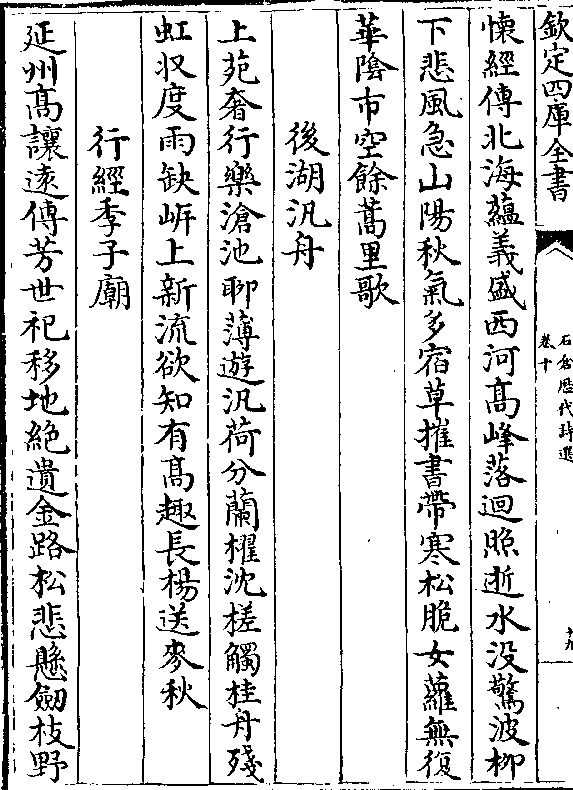 欽定四庫全書
石倉歷代詩選
卷十
十九
懐經傳北海蘊義盛西河髙峰落迴照逝水没驚波柳
下悲風急山陽秋氣多宿草摧書帶寒松脆女蘿無復
華隂市空餘蒿里歌
後湖汎舟
上苑奢行樂滄池聊薄遊汎荷分蘭櫂沈槎觸桂舟殘
虹収度雨缺岸上新流欲知有髙趣長楊送麥秋
行經季子廟
延州髙讓逺傳芳世祀移地絶遺金路松悲懸劒枝野